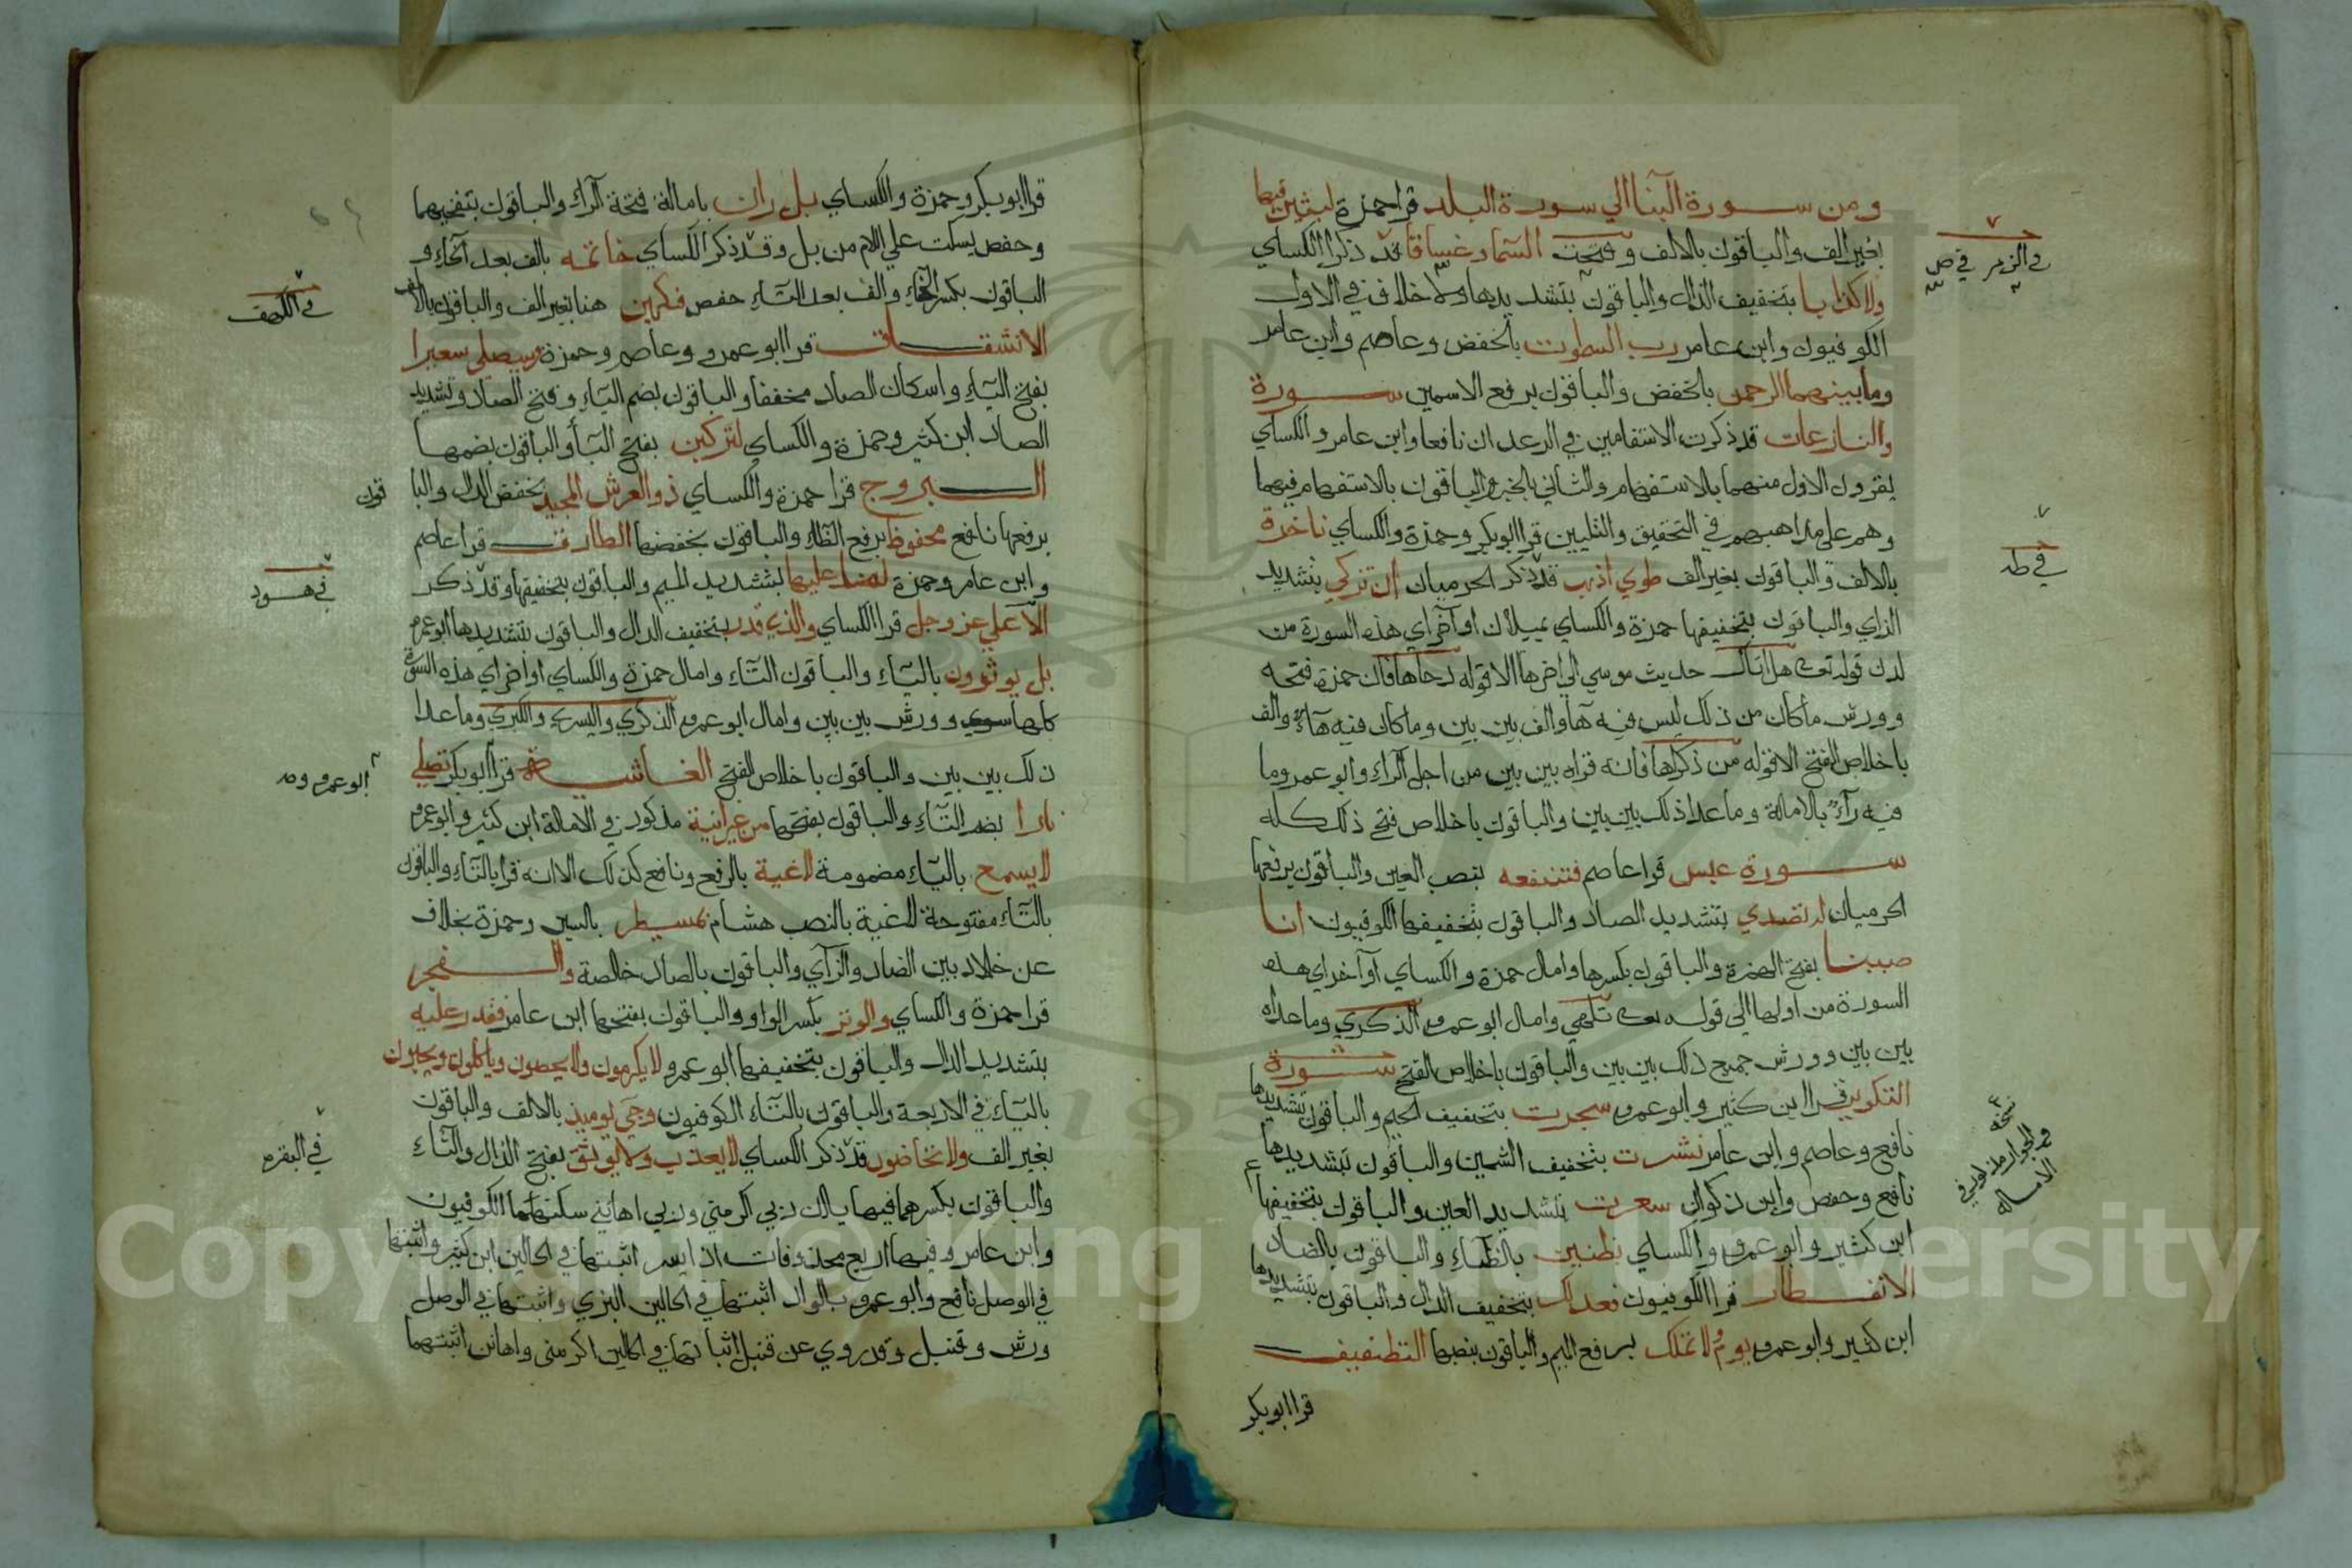 ومن سورة النبا الي سورة البلد قرا حمزة لبثين فيها
بغير الف والباقون بالالف وفتحت السما وغساقا قد ذكرا الكساي
ولا كذابا بتخفيف الذال والباقون بتشديدها ولا خلاف في الاول
الكوفيون وابن عامر رب السموت بالخفض وعاصم وابن عامر
وما بينهما الرحمن بالخفض والباقون برفع الاسمين سورة
والنازعات قد ذكرت الاستفامين في الرعد ان نافعا وابن عامر والكساي
يقرون الاول منهما بالاستفهام والثاني بالخبر والباقون بالاستفهام فيهما
وهم علي مذاهبهم في التحقيق والتليين قرا ابو بكر وحمزة والكساي ناخرة
بالالف والباقون بغير الف طوي اذهب قد ذكر الحرميان ان تزكي بتشديد
الزاي والباقون بتخفيفها حمزة والكساي يميلان اواخر اي هذه السورة من
لدن قوله تعالى هل اتاك حديث موسي الي اخرها الا قوله دحاها فان حمزة فتحه
وورش ما كان من ذلك ليس فيه هآ والف بين بين وما كان فيه هآء والف
باخلاص الفتح الا قوله من ذكراها فانه قراه بين بين من اجل الرآء وابو عمرو ما
فيه رآء بالامالة وما عدا ذلك بين بين والباقون باخلاص فتح ذلك كله
سورة عبس قرا عاصم فتنفعه بنصب العين والباقون برفعها
الحرميان له تصدي بتشديد الصاد والباقون بتخفيفها الكوفيون انا
صببنا بفتح الهمزة والباقون بكسرها وامال حمزة والكساي اواخر اي هذه
السورة من اولها الي قوله تعالى تلهي وامال ابو عمرو الذكري وما عداه
بين بين وورش جميع ذلك بين بين والباقون باخلاص الفتح سورة
التكوير قرا ابن كثير وابو عمرو سجرت بتخفيف الجيم والباقون بتشديدها
نافع وعاصم وابن عامر نشرت بتخفيف الشين والباقون بتشديدها
نافع وحفص وابن ذكوان سعرت بتشديد العين والباقون بتخفيفها
ابن كثير وابو عمرو والكساي بظنين بالظآء والباقون بالضاد
الانفطار قرا الكوفيون فعدلك بتخفيف الدال والباقون بتشديدها
ابن كثير وابو عمرو يوم لا تملك برفع الميم والباقون بنصبها التطفيف
قرا ابو بكر
والزمر في ص
في طه
نسخة
والجوار مذكور في
الامالة
قرا ابو بكر وحمزة والكساي بل ران بامالة فتحة الرآء والباقون بتفخيمها
وحفص يسكت علي اللام من بل وقد ذكر الكساي خاتمه بالف بعد الخاء و
الباقون بكسر الخاء والف بعد التآء حفص فكهين هنا بغير الف والباقون بالالف
الانشقاق قرا ابو عمرو وعاصم وحمزة ويصلي سعيرا
بفتح اليآء واسكان الصاد مخففا والباقون بضم اليآء وفتح الصاد وتشديد
الصاد ابن كثير وحمزة والكساي لتركبن بفتح البآ والباقون بضمها
البروج قرا حمزة والكساي ذو العرش المجيد بخفض الدال والبا قون
برفعها نافع محفوظ برفع الظاء والباقون بخفضها الطارق قرا عاصم
وابن عامر وحمزة لما عليها بتشديد الميم والباقون بتخفيفها وقد ذكر
الاعلي عز وجل قرا الكساي والذي قدر بتخفيف الدال والباقون بتشديدها ابو عمرو
بل يوثرون باليآء والباقون التآء وامال حمزة والكساي اواخر اي هذه السورة
كلها سوي وورش بين بين وامال ابو عمرو الذكري واليسري والكبري وما عدا
ذلك بين بين والباقون باخلاص الفتح الغاشية قرا ابو بكر تصلي
نارا بضم التآء والباقون بفتحها من عين انية مذكور في الامالة ابن كثير وابو عمرو
لا يسمع باليآء مضمومة لاغية بالرفع ونافع كذلك الا انه قرا بالتآء والباقون
بالتآء مفتوحة لاغية بالنصب هشام بمسيطر بالسين وحمزة بخلاف
عن خلاد بين الصاد والزآي والباقون بالصاد خالصة والفجر
قرا حمزة والكساي والوتر بكسر الواو والباقون بفتحها ابن عامر فقدر عليه
بتشديد الدال والباقون بتخفيفها ابو عمرو لا يكرمون ولا يحضون وياكلون ويحبون
باليآء في الاربعة والباقون بالتآء الكوفيون وجيء يوميذ بالالف والباقون
بغير الف ولا تحاضون قد ذكر الكساي لا يعذب ولا يوثق بفتح الذال والثآء
والباقون بكسرهما فيها يا ان ربي اكرمني وربي اهانني سكنهما الكوفيون
وابن عامر وفيها اربع محذوفات اذا يسر اثبتها في الحالين ابن كثير واثبتها
في الوصل نافع وابو عمرو بالواد اثبتها في الحالين البزي واثبتها في الوصل
ورش وقنبل وقد روي عن قنبل اثباتها في الحالين اكرمني واهانن اثبتهما
في الكهف
في هود
ابو عمرو
في البقرة
Copyright (c) King Saud University
195